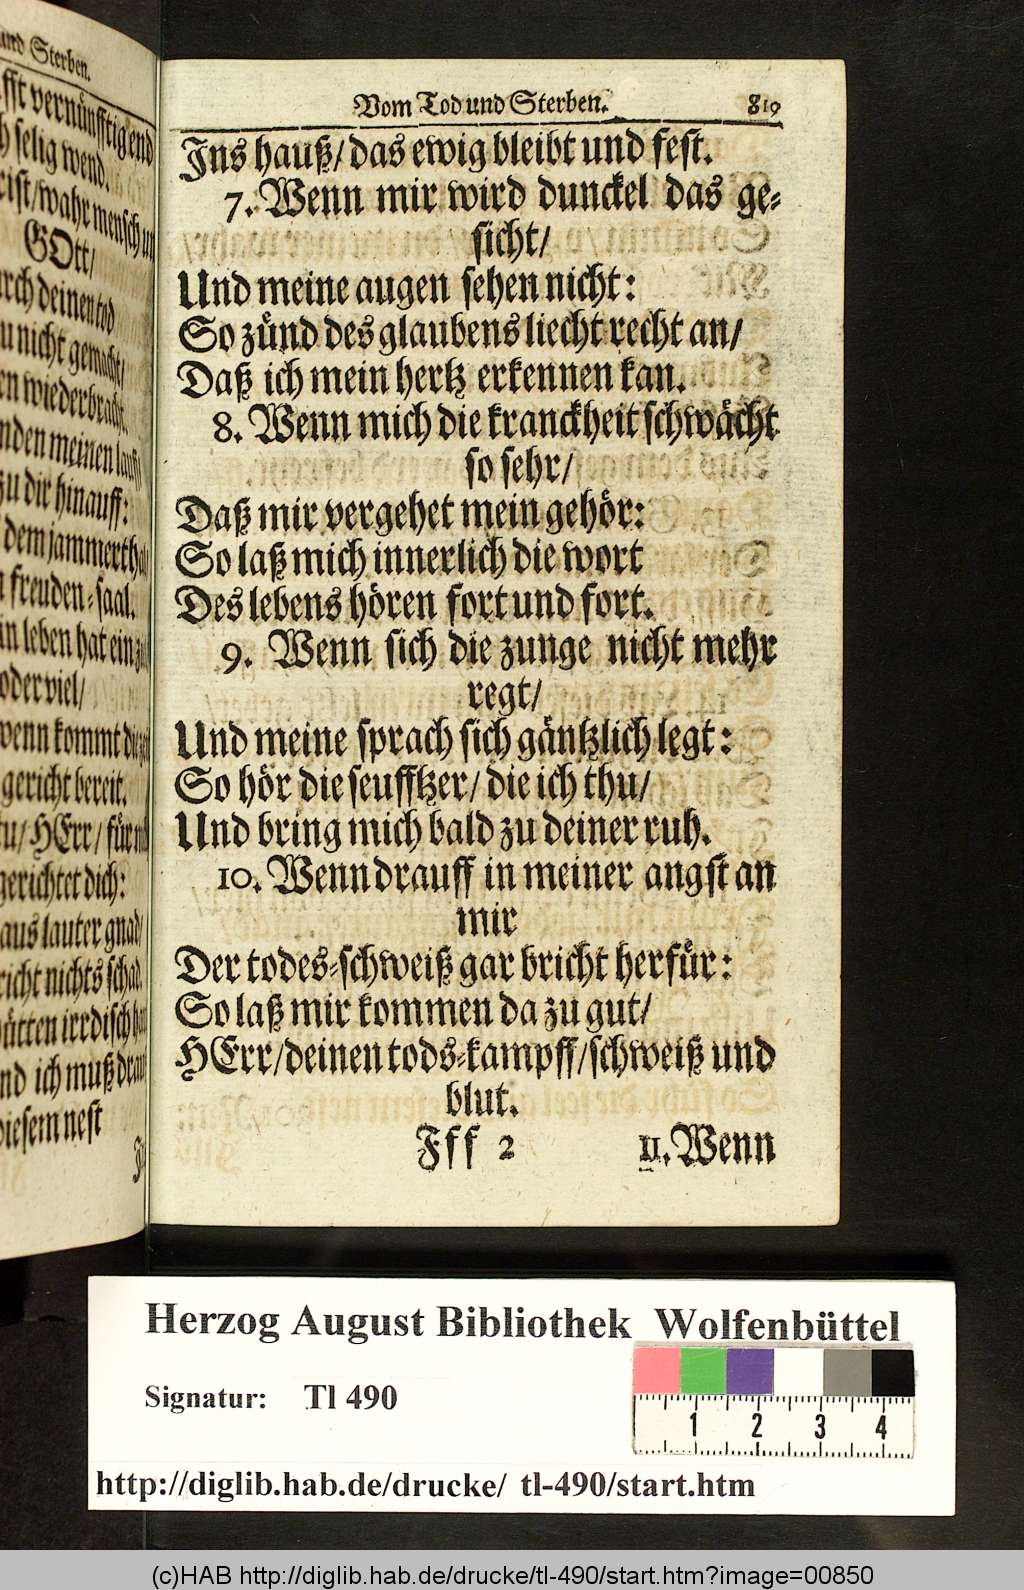 und Sterben.
vernünfftig end
selig wend.
wahr mensch
GOtt/
deinen tod
nicht gemacht/
wiederbracht.
meinen lauff
zu dir hinauff:
dem jammerthal
freuden-saal.
leben hat ein
oder viel/
wenn kommt die
gericht bereit.
HErr/ für
gerichtet dich:
aus lauter gnad/
nichts schad.
hütten irrdisch
und ich muß draus
diesem nest
Vom Tod und Sterben. 819
Ins hauß/ das ewig bleibt und fest.
7. Wenn mir wird dunckel das ge-
sicht/
Und meine augen sehen nicht:
So zünd des glaubens liecht recht an/
Daß ich mein hertz erkennen kan.
8. Wenn mich die kranckheit schwächt
so sehr/
Daß mir vergehet mein gehör:
So laß mich innerlich die wort
Des lebens hören fort und fort.
9. Wenn sich die zunge nicht mehr
regt/
Und meine sprach sich gäntzlich legt:
So hör die seufftzer/ die ich thu/
Und bring mich bald zu deiner ruh.
10. Wenn drauff in meiner angst an
mir
Der todes-schweiß gar bricht herfür:
So laß mir kommen da zu gut/
HErr/ deinen tods-kampff/ schweiß und
blut.
Fff 2 11. Wenn
Herzog August Bibliothek Wolfenbüttel
Signatur: Tl 490
1 2 3 4
http://diglib.hab.de/drucke/ tl-490/start.htm
(c)HAB http://diglib.hab.de/drucke/tl-490/start.htm?image=00850